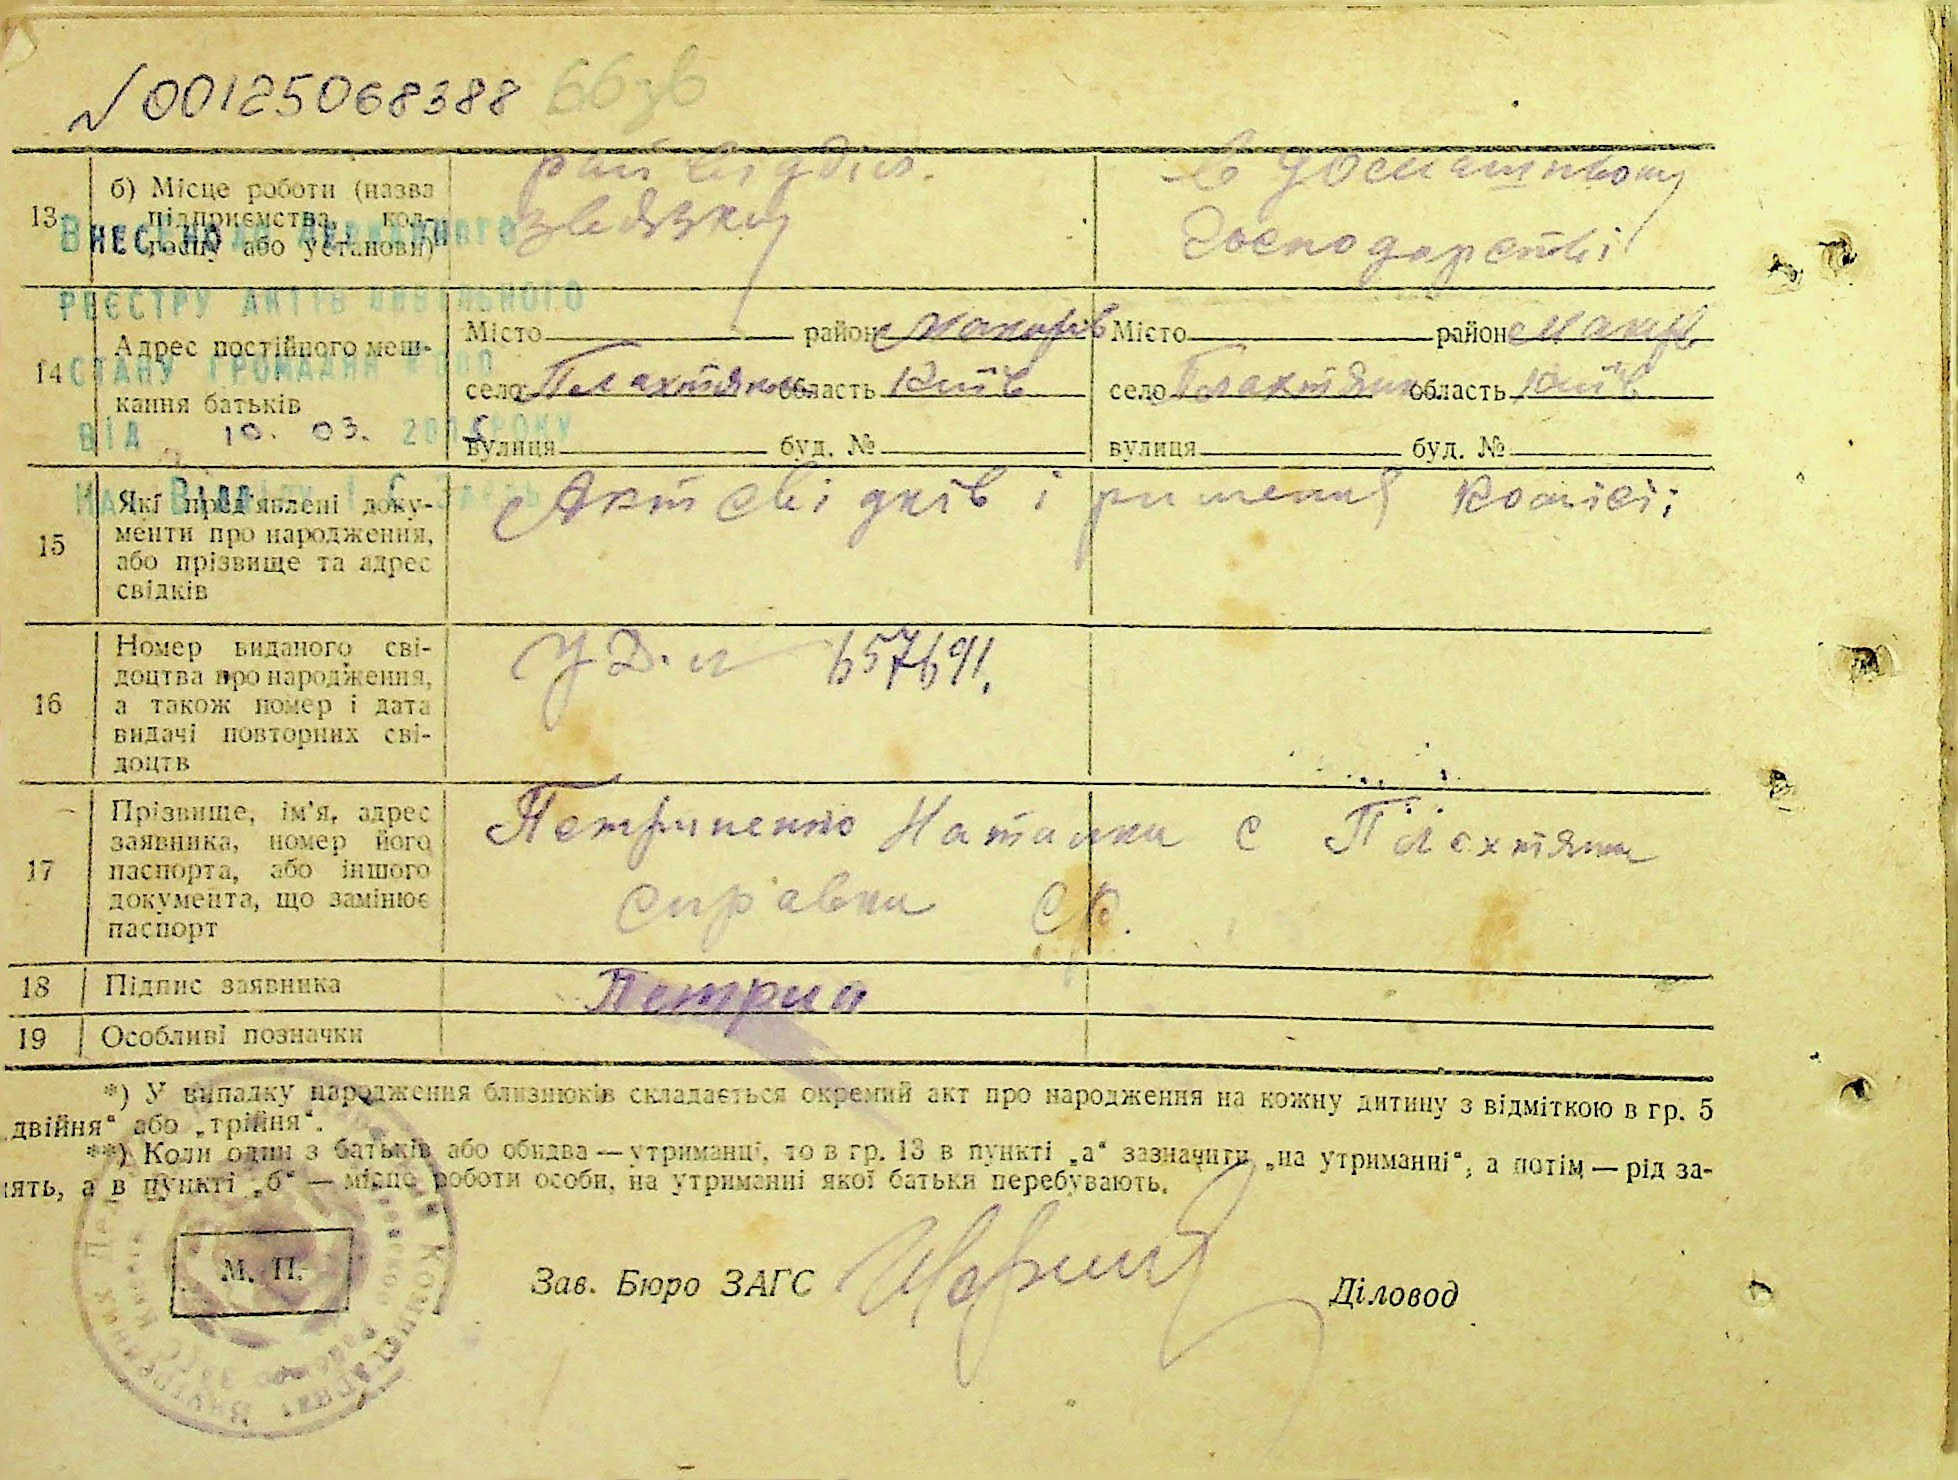 № 00125068388 66зв
13 б) Місце роботи (назва підприємства, колгоспу або установи)
рай відділ.
звязку
в домашньому
господарстві
Внесено до Державного
реєстру актів цивільного
стану громадян
від 10. 03. 200 року
14 Адрес постійного мешкання батьків
Місто район Макарів
село Плахтянка область Київ
вулиця буд. №
Місто район Макарів
село Плахтянка область Київ
вулиця буд. №
15 Які пред'явлені доку-
менти про народження,
або прізвище та адрес
свідків
Акт свідків і ришення комісії
16 Номер виданого сві-
доцтва про народження,
а також номер і дата
видачі повторних сві-
доцтв
657691.
17 Прізвище, ім'я, адрес
заявника, номер його
паспорта, або іншого
документа, що замінює
паспорт
Петриненко Наталка с Плахтянка
справка
18 Підпис заявника
19 Особливі позначки
*) У випадку народження близнюків складається окремий акт про народження на кожну дитину з відміткою в гр. 5
„двійня“ або „трійня“.
**) Коли один з батьків або обидва — утриманці, то в гр. 13 в пункті „а“ зазначити „на утриманні“, а потім — рід за-
нять, а в пункті „б“ — місце роботи особи, на утриманні якої батьки перебувають.
М. П.
Зав. Бюро ЗАГС
Діловод